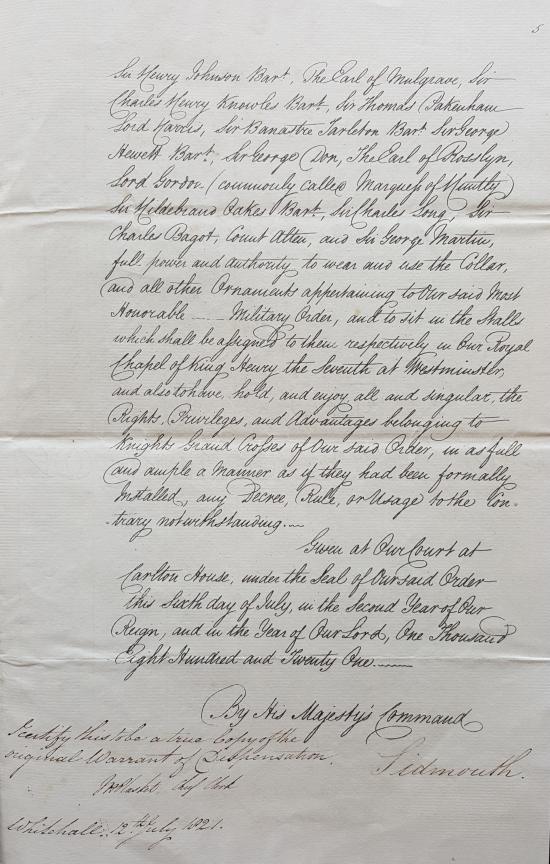 5
Sir Henry Johnson Bart., The Earl of Mulgrave, Sir
Charles Henry Knowles Bart, Sir Thomas Pakenham
Lord Harris, Sir Banastre Tarleton Bart. Sir George
Hewett Bart, Sir George Don, The Earl of Rosslyn,
Lord Gordon (commonly called Marquess of Huntly)
Sir Hildebrand Oakes Bart, Sir Charles Long, Sir
Charles Bagot, Count Alten, and Sir George Martin,
full power and authority to wear and use the Collar,
and all other Ornaments appertaining to Our said Most
Honorable Military Order, and to sit in the Stalls
which shall be assigned to them respectively in Our Royal
Chapel of King Henry the Seventh at Westminster,
and also to have, hold, and enjoy, all and singular, the
Rights, Privileges, and Advantages belonging to
Knights Grand Crosses of Our said Order, in as full
and ample a Manner as if they had been formally
Installed, any Decree, Rule, or Usage to the Con-
-trary notwithstanding.
Given at Our Court at
Carlton House, under the Seal of Our said Order
this Sixth day of July, in the Second Year of Our
Reign, and in the Year of Our Lord, One Thousand
Eight Hundred and Twenty One.
By His Majesty's Command
Sidmouth.
I certify this to be a true Copy of the
original Warrant of Dispensation.
Chief Clerk
Whitehall. 12th July 1821.